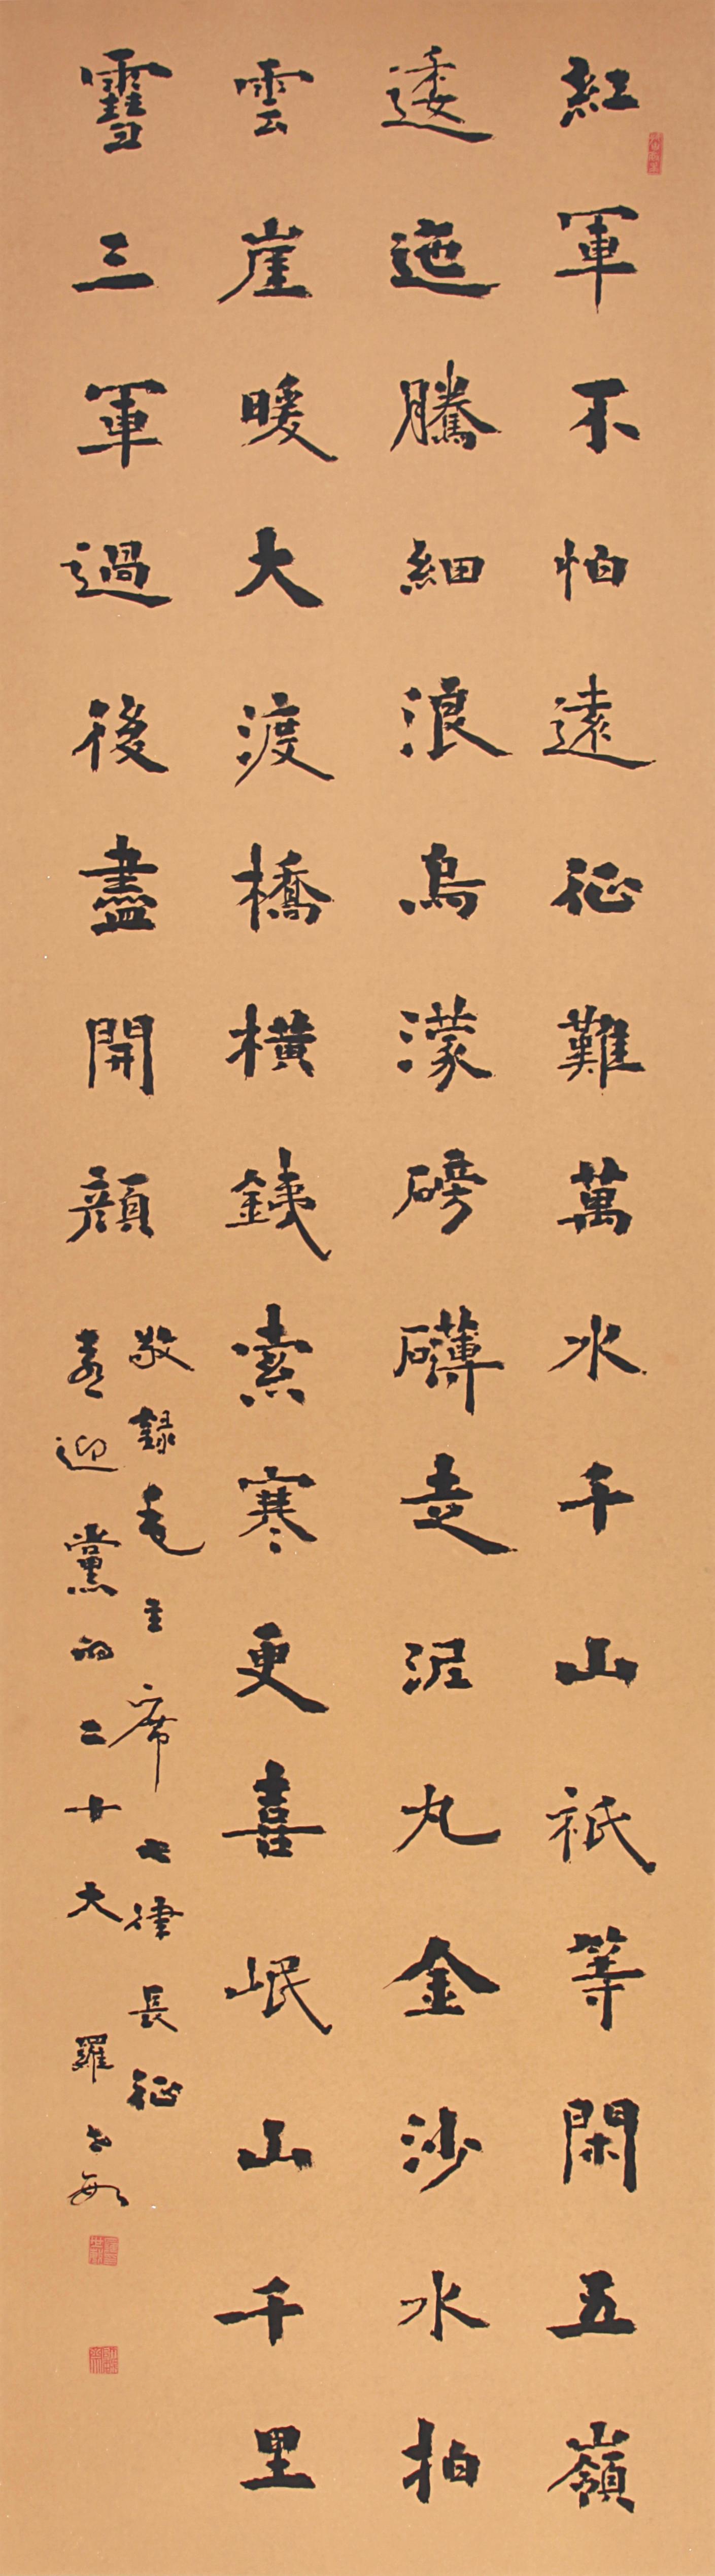 紅軍不怕遠征難萬水千山祇等閑五嶺
逶迤騰細浪烏濛磅礴走泥丸金沙水拍
雲崖暖大渡橋橫鐵索寒更喜岷山千里
雪三軍過後盡開顏
敬録毛主席七律長征
喜迎黨的二十大 羅